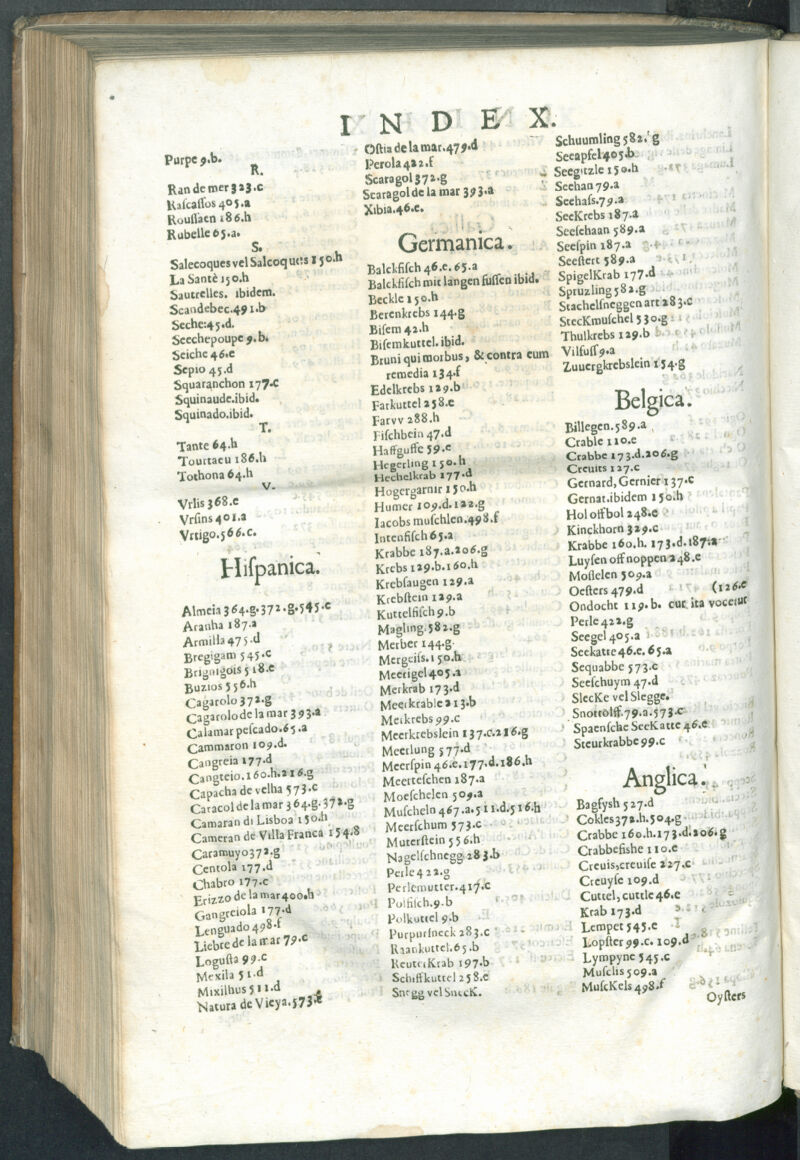 INDEX.
Purpe 9.b.
R.
Ran de mer 323.c
Raſcaſſos 405.a
Rouſſaen 186.h
Rubelle 65.a.
S.
Salecoques vel Salcoques 150.h
La Santè 150.h
Sautrelles. ibidem.
Scandebec.491.b
Seche:45.d.
Seechepoupe 9.b.
Seiche 46.e
Sepio 45.d
Squaranchon 177.c
Squinaude.ibid.
Squinado.ibid.
T.
Tante 64.h
Tourtaeu 186.h
Tothona 64.h
V.
Vrlis 368.e
Vrſins 401.a
Vrtigo.566.c.
Hiſpanica.
Almeia 364.g.372.g.545.c
Aranha 187.a
Armilla 475.d
Bregigam 545.c
Brignigois 518.e
Buzios 556.h
Cagarolo 372.g
Cagarolo de la mar 393.a
Calamar peſcado.65.a
Cammaron 109.d.
Cangreia 177.d
Cangreio.160.h.216.g
Capacha de velha 573.c
Caracol de la mar 364.g.372.g
Camaran di Lisboa 150.h
Cameran de Villa Franca 154.g
Caramuyo 372.g
Centola 177.d
Chabro 177.c
Erizzo de la mar 400.h
Gangreiola 177.d
Lenguado 498.f
Liebre de la mar 79.c
Loguſta 99.c
Mexila 51.d
Mixilhus 511.d
Natura de Vieya.573.c
Oſtia de la mar.479.d
Perola 422.f
Scaragol 372.g
Scaragol de la mar 393.a
Xibia.46.e.
Germanica.
Balckfiſch 46.e.65.a
Balckfiſch mit langen fuſſen ibid.
Beckle 150.h
Berenkrebs 144.g
Biſem 42.h
Biſemkuttel.ibid.
Bruni qui morbus, & contra eum
remedia 134.f
Edelkrebs 129.b
Farkuttel 258.e
Farvv 288.h
Fiſchbein 47.d
Haffguffe 59.e
Hegerling 150.h
Hechelkrab 177.d
Hogergarnir 150.h
Humer 109.d.122.g
Iacobs muſchlen.498.f
Intenfiſch 65.a
Krabbe 187.a.206.g
Krebs 129.b.160.h
Krebſaugen 129.a
Krebſtein 129.a
Kuttelfiſch 9.b
Magling.582.g
Merber 144.g
Mergeiſs.150.h
Meerigel 405.a
Merkrab 173.d
Meerkrable 213.b
Meikrebs 99.c
Meerkrebslein 137.c.216.g
Meerlung 577.d
Meerſpin 46.e.177.d.186.h
Meerteſchen 187.a
Moeſchelen 509.a
Muſcheln 467.a.511.d.516.h
Meerſchum 573.c
Muterſtein 556.h
Nagelſchnegg 283.b
Perle 422.g
Perlemutter.417.c
Polfiſch.9.b
Polkuttel 9.b
Purpurſneck 283.c
Raankuttel.65.b
ReuterKrab 197.b
Schiffkuttel 258.e
Snegg vel SnecK.
Schuumling 582.g
Seeapfel 405.b
Seegitzle 150.h
Seehan 79.a
Seehaſs.79.a
SeeKrebs 187.a
Seeſchaan 589.a
Seeſpin 187.a
Seeſtert 589.a
SpigelKrab 177.d
Sptuzling 582.g
Stachelſneggen art 283.c
StecKmuſchel 530.g
Thulkrebs 129.b
Vilfuſſ 9.a
Zuuergkrebslein 154.g
Belgica.
Billegen.589.a
Crable 110.e
Crabbe 173.d.206.g
Creuits 127.c
Gernard, Gernier 137.c
Gernat.ibidem 150.h
Hol off bol 248.e
Kinckhorn 329.c
Krabbe 160.h. 173.d.187.a
Luyſen off noppen 248.e
Moſſelen 509.a
Oeſters 479.d (126.e
Ondocht 119.b. cur ita vocetur
Perle 422.g
Seegel 405.a
Seekatte 46.e.65.a
Sequabbe 573.c
Seeſchuym 47.d
SlecKe vel Slegge.
Snottolff.79.a.573.c
Spaenſche SeeKatte 46.e
Steurkrabbe 99.c
Anglica.
Bagfysh 527.d
Cokles 372.h.504.g
Crabbe 160.h.173.d.206.g
Crabbefishe 110.e
Creuis,creuiſe 227.c
Creuyſe 109.d
Cuttel, cuttle 46.e
Krab 173.d
Lempet 545.e
Lopſter 99.c. 109.d
Lympyne 545.c
Muſclis 509.a
MuſcKels 498.f
Oyſters